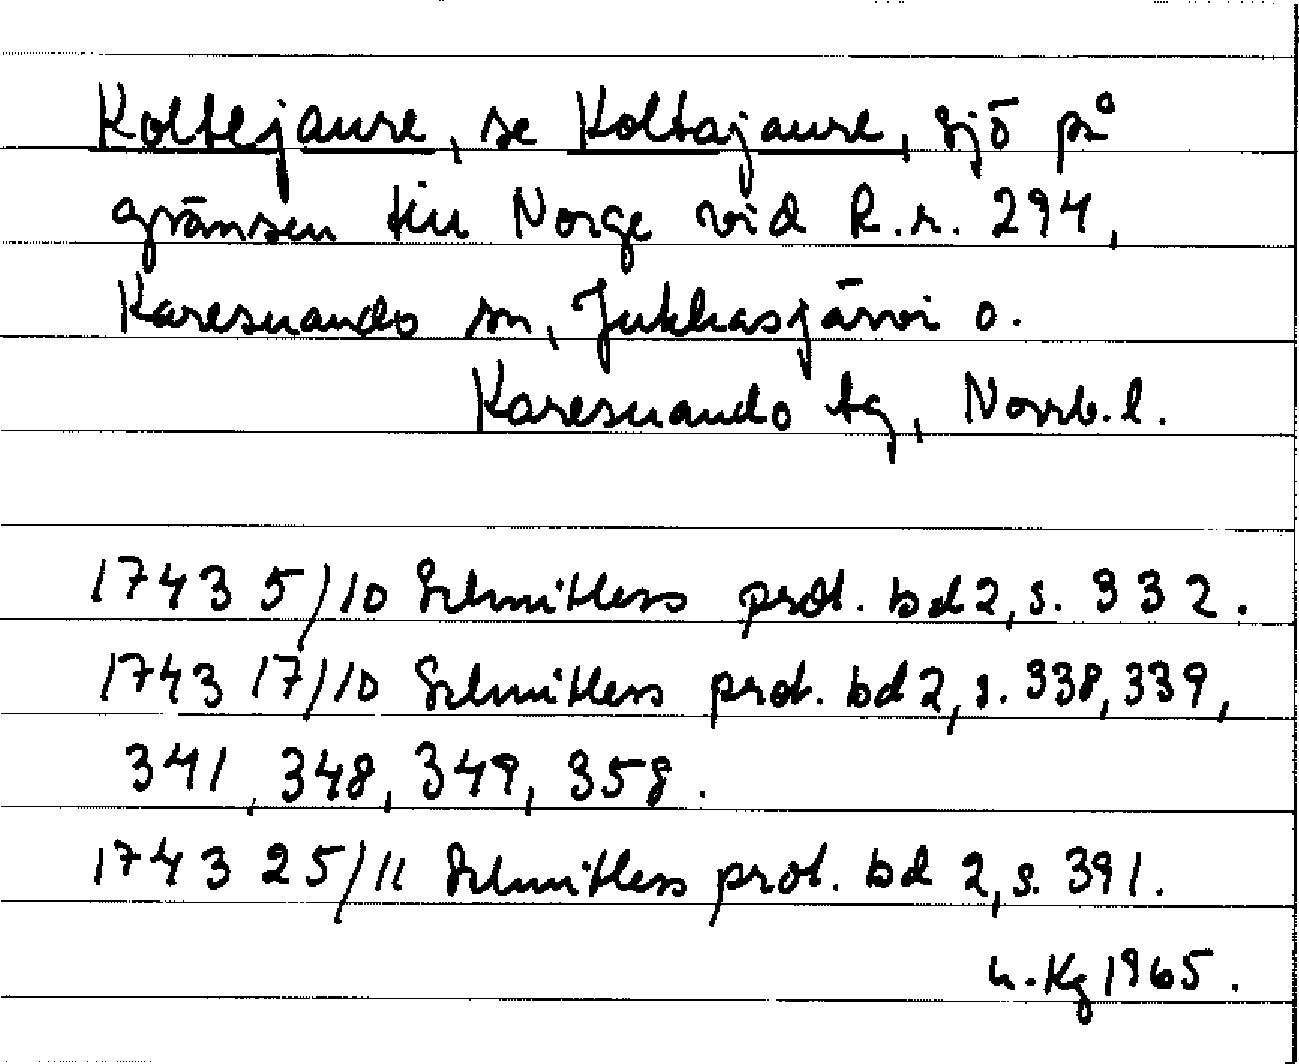 Koltejaure, se Koltajaure, sjö på
gränsen till Norge vid R.r. 294,
Karesuando sn, Jukkasjärvi o.
Karesuando tg, Norrb.l.
1743 5/10 Schnitlers prot. bd 2, s. 332.
1743 17/10 Schnitlers prot. bd 2, s. 338, 339,
341, 348, 349, 358.
1743 25/11 Schnitlers prot. bd 2, s. 391.
Kg 1965.